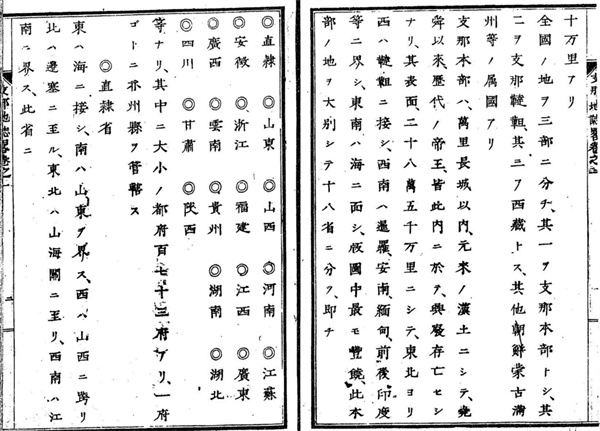 十万里アリ
全國ノ地ヲ三部ニ分チ、其一ヲ支那本部トシ、其
二ヲ支那韃靼、其三ヲ西藏トス、其他朝鮮蒙古満
州等ノ属國アリ
支那本部ハ、萬里長城以内、元來ノ漢土ニシテ、堯
舜以來歴代ノ帝王、皆此内ニ於テ、興廢存亡セシ
ナリ、其表面、二十八萬五千万里ニシテ、東北ヨリ
西ハ韃靼ニ接シ、西南ハ暹羅、安南、緬甸、前後印度
等ニ界シ、東南ハ海ニ面シ、版圖中最モ豊饒、此本
部ノ地ヲ大別シテ十八省ニ分ツ、即チ
◎直隷 ◎山東 ◎山西 ◎河南 ◎江蘇
◎安徽 ◎浙江 ◎福建 ◎江西 ◎廣東
◎廣西 ◎雲南 ◎貴州 ◎湖南 ◎湖北
◎四川 ◎甘肅 ◎陝西
等ナリ、其中ニ大小ノ都府百七十三府アリ、一府
ゴトニ亦州縣ヲ管轄ス
◎直隷省
東ハ海ニ接シ、南ハ山東ヲ界ス、西ハ山西ニ跨リ
北ハ邊塞ニ至ル、東北ハ山海關ニ至リ、西南ハ江
南ニ界ス、此省ニ